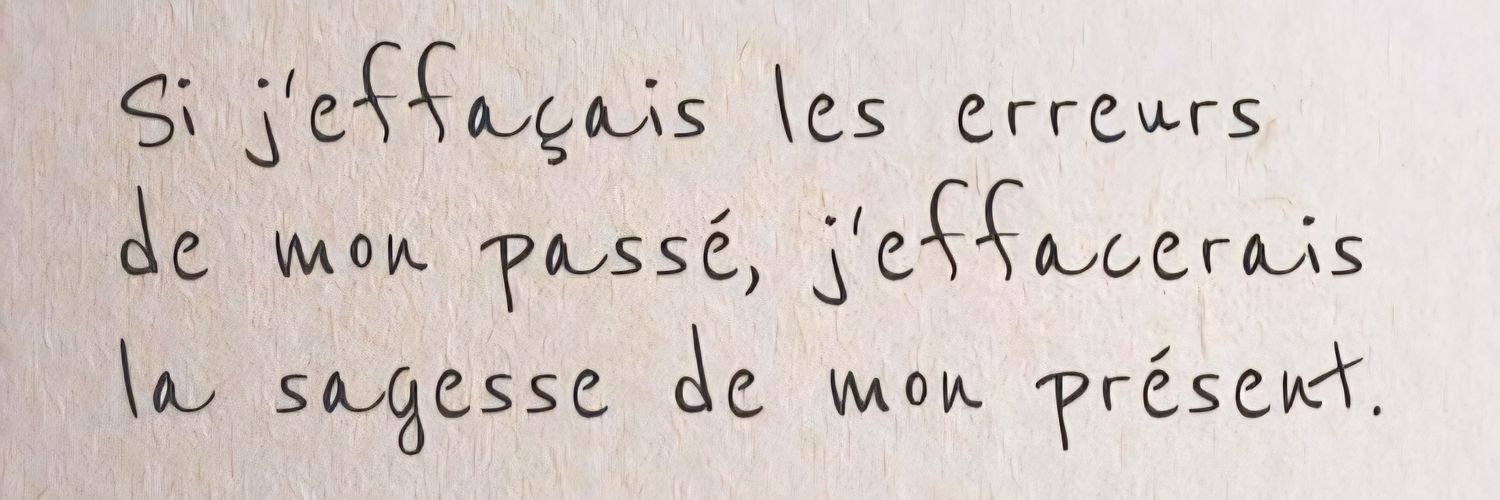 Si j'effaçais les erreurs
de mon passé, j'effacerais
la sagesse de mon présent.